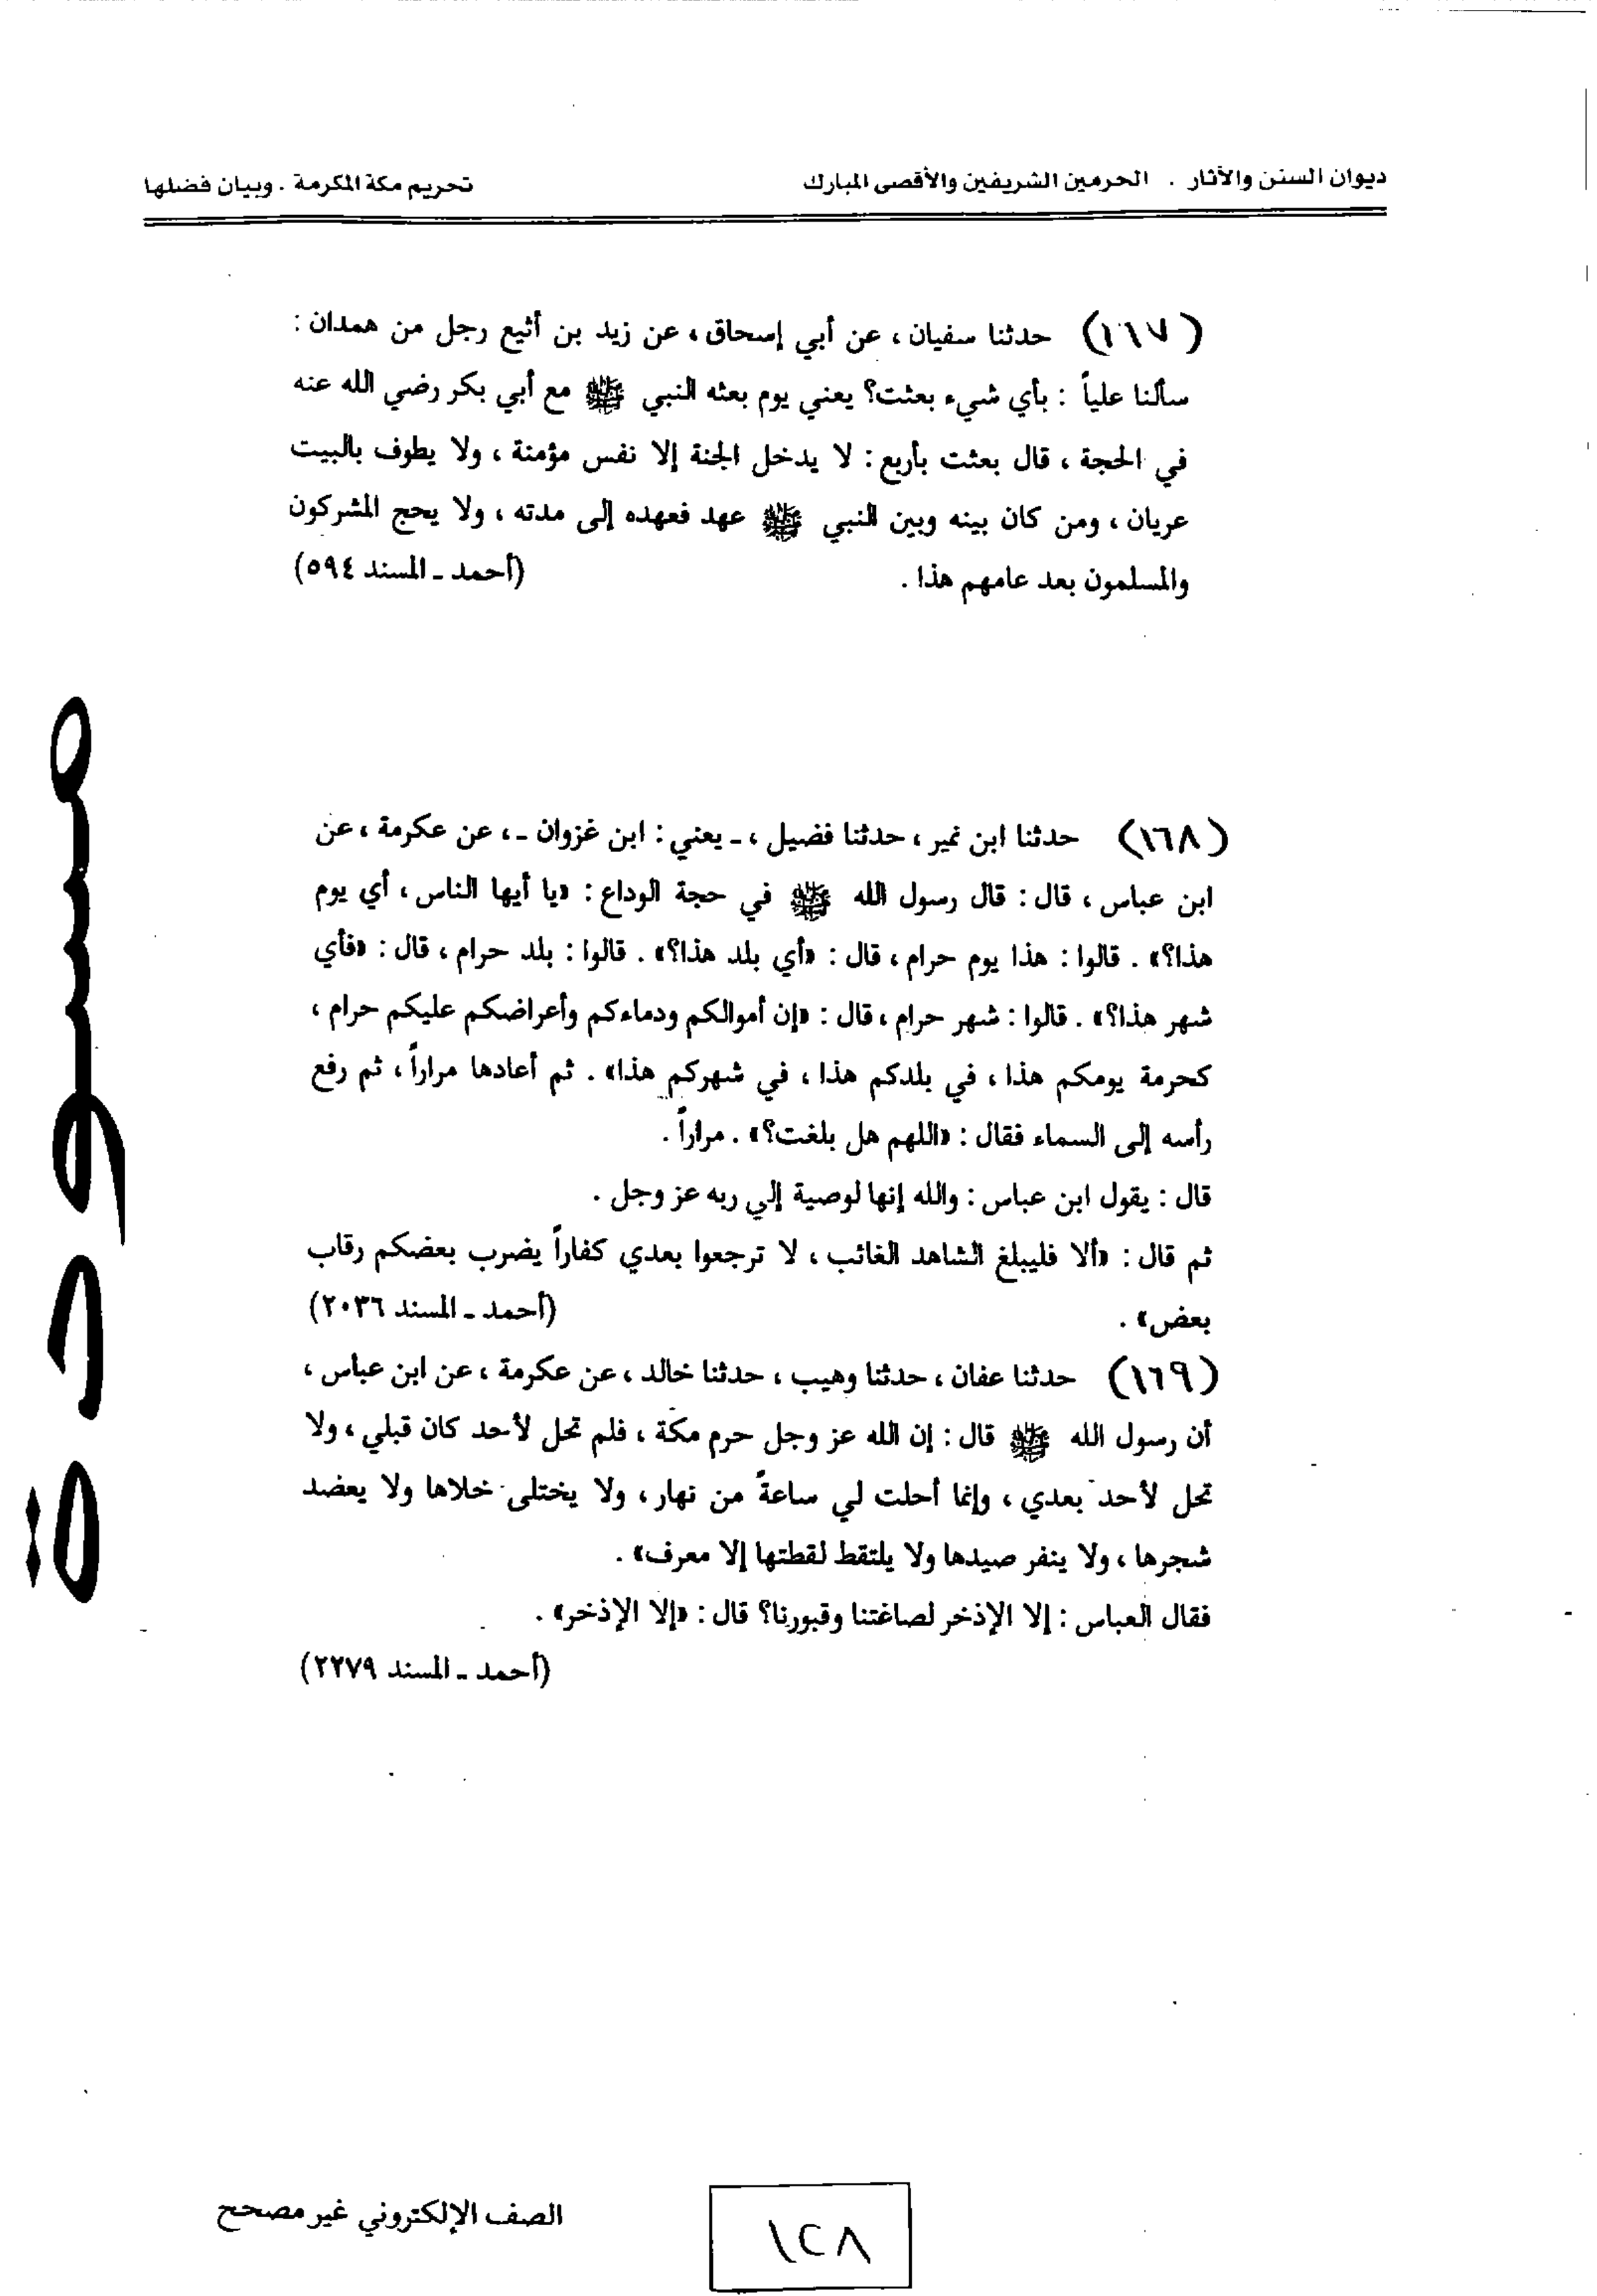 ديوان السنن والآثار . الحرمين الشريفين والأقصى المبارك
تحريم مكة المكرمة . وبيان فضلها
(١٦٧) حدثنا سفيان ، عن أبي إسحاق ، عن زيد بن أثيع رجل من همدان :
سألنا علياً : بأي شيء بعثت؟ يعني يوم بعثه النبي ﷺ مع أبي بكر رضي الله عنه
في الحجة ، قال بعثت بأربع : لا يدخل الجنة إلا نفس مؤمنة ، ولا يطوف بالبيت
عريان ، ومن كان بينه وبين النبي ﷺ عهد فعهده إلى مدته ، ولا يحج المشركون
والمسلمون بعد عامهم هذا . (أحمد ـ المسند ٥٩٤)
(١٦٨) حدثنا ابن نمير ، حدثنا فضيل ، ـ يعني : ابن غزوان ـ ، عن عكرمة ، عن
ابن عباس ، قال : قال رسول الله ﷺ في حجة الوداع : «يا أيها الناس ، أي يوم
هذا؟» . قالوا : هذا يوم حرام ، قال : «أي بلد هذا؟» . قالوا : بلد حرام ، قال : «فأي
شهر هذا؟» . قالوا : شهر حرام ، قال : «إن أموالكم ودماءكم وأعراضكم عليكم حرام ،
كحرمة يومكم هذا ، في بلدكم هذا ، في شهركم هذا» . ثم أعادها مراراً ، ثم رفع
رأسه إلى السماء فقال : «اللهم هل بلغت؟» . مراراً .
قال : يقول ابن عباس : والله إنها لوصية إلي ربه عز وجل .
ثم قال : «ألا فليبلغ الشاهد الغائب ، لا ترجعوا بعدي كفاراً يضرب بعضكم رقاب
بعض» . (أحمد ـ المسند ٢٠٣٦)
(١٦٩) حدثنا عفان ، حدثنا وهيب ، حدثنا خالد ، عن عكرمة ، عن ابن عباس ،
أن رسول الله ﷺ قال : إن الله عز وجل حرم مكة ، فلم تحل لأحد كان قبلي ، ولا
تحل لأحد بعدي ، وإنما أحلت لي ساعةً من نهار ، ولا يختلى خلاها ولا يعضد
شجرها ، ولا ينفر صيدها ولا يلتقط لقطتها إلا معرف» .
فقال العباس : إلا الإذخر لصاغتنا وقبورنا؟ قال : «إلا الإذخر» .
(أحمد ـ المسند ٢٢٧٩)
مسودة
١٢٨
الصف الإلكتروني غير مصحح